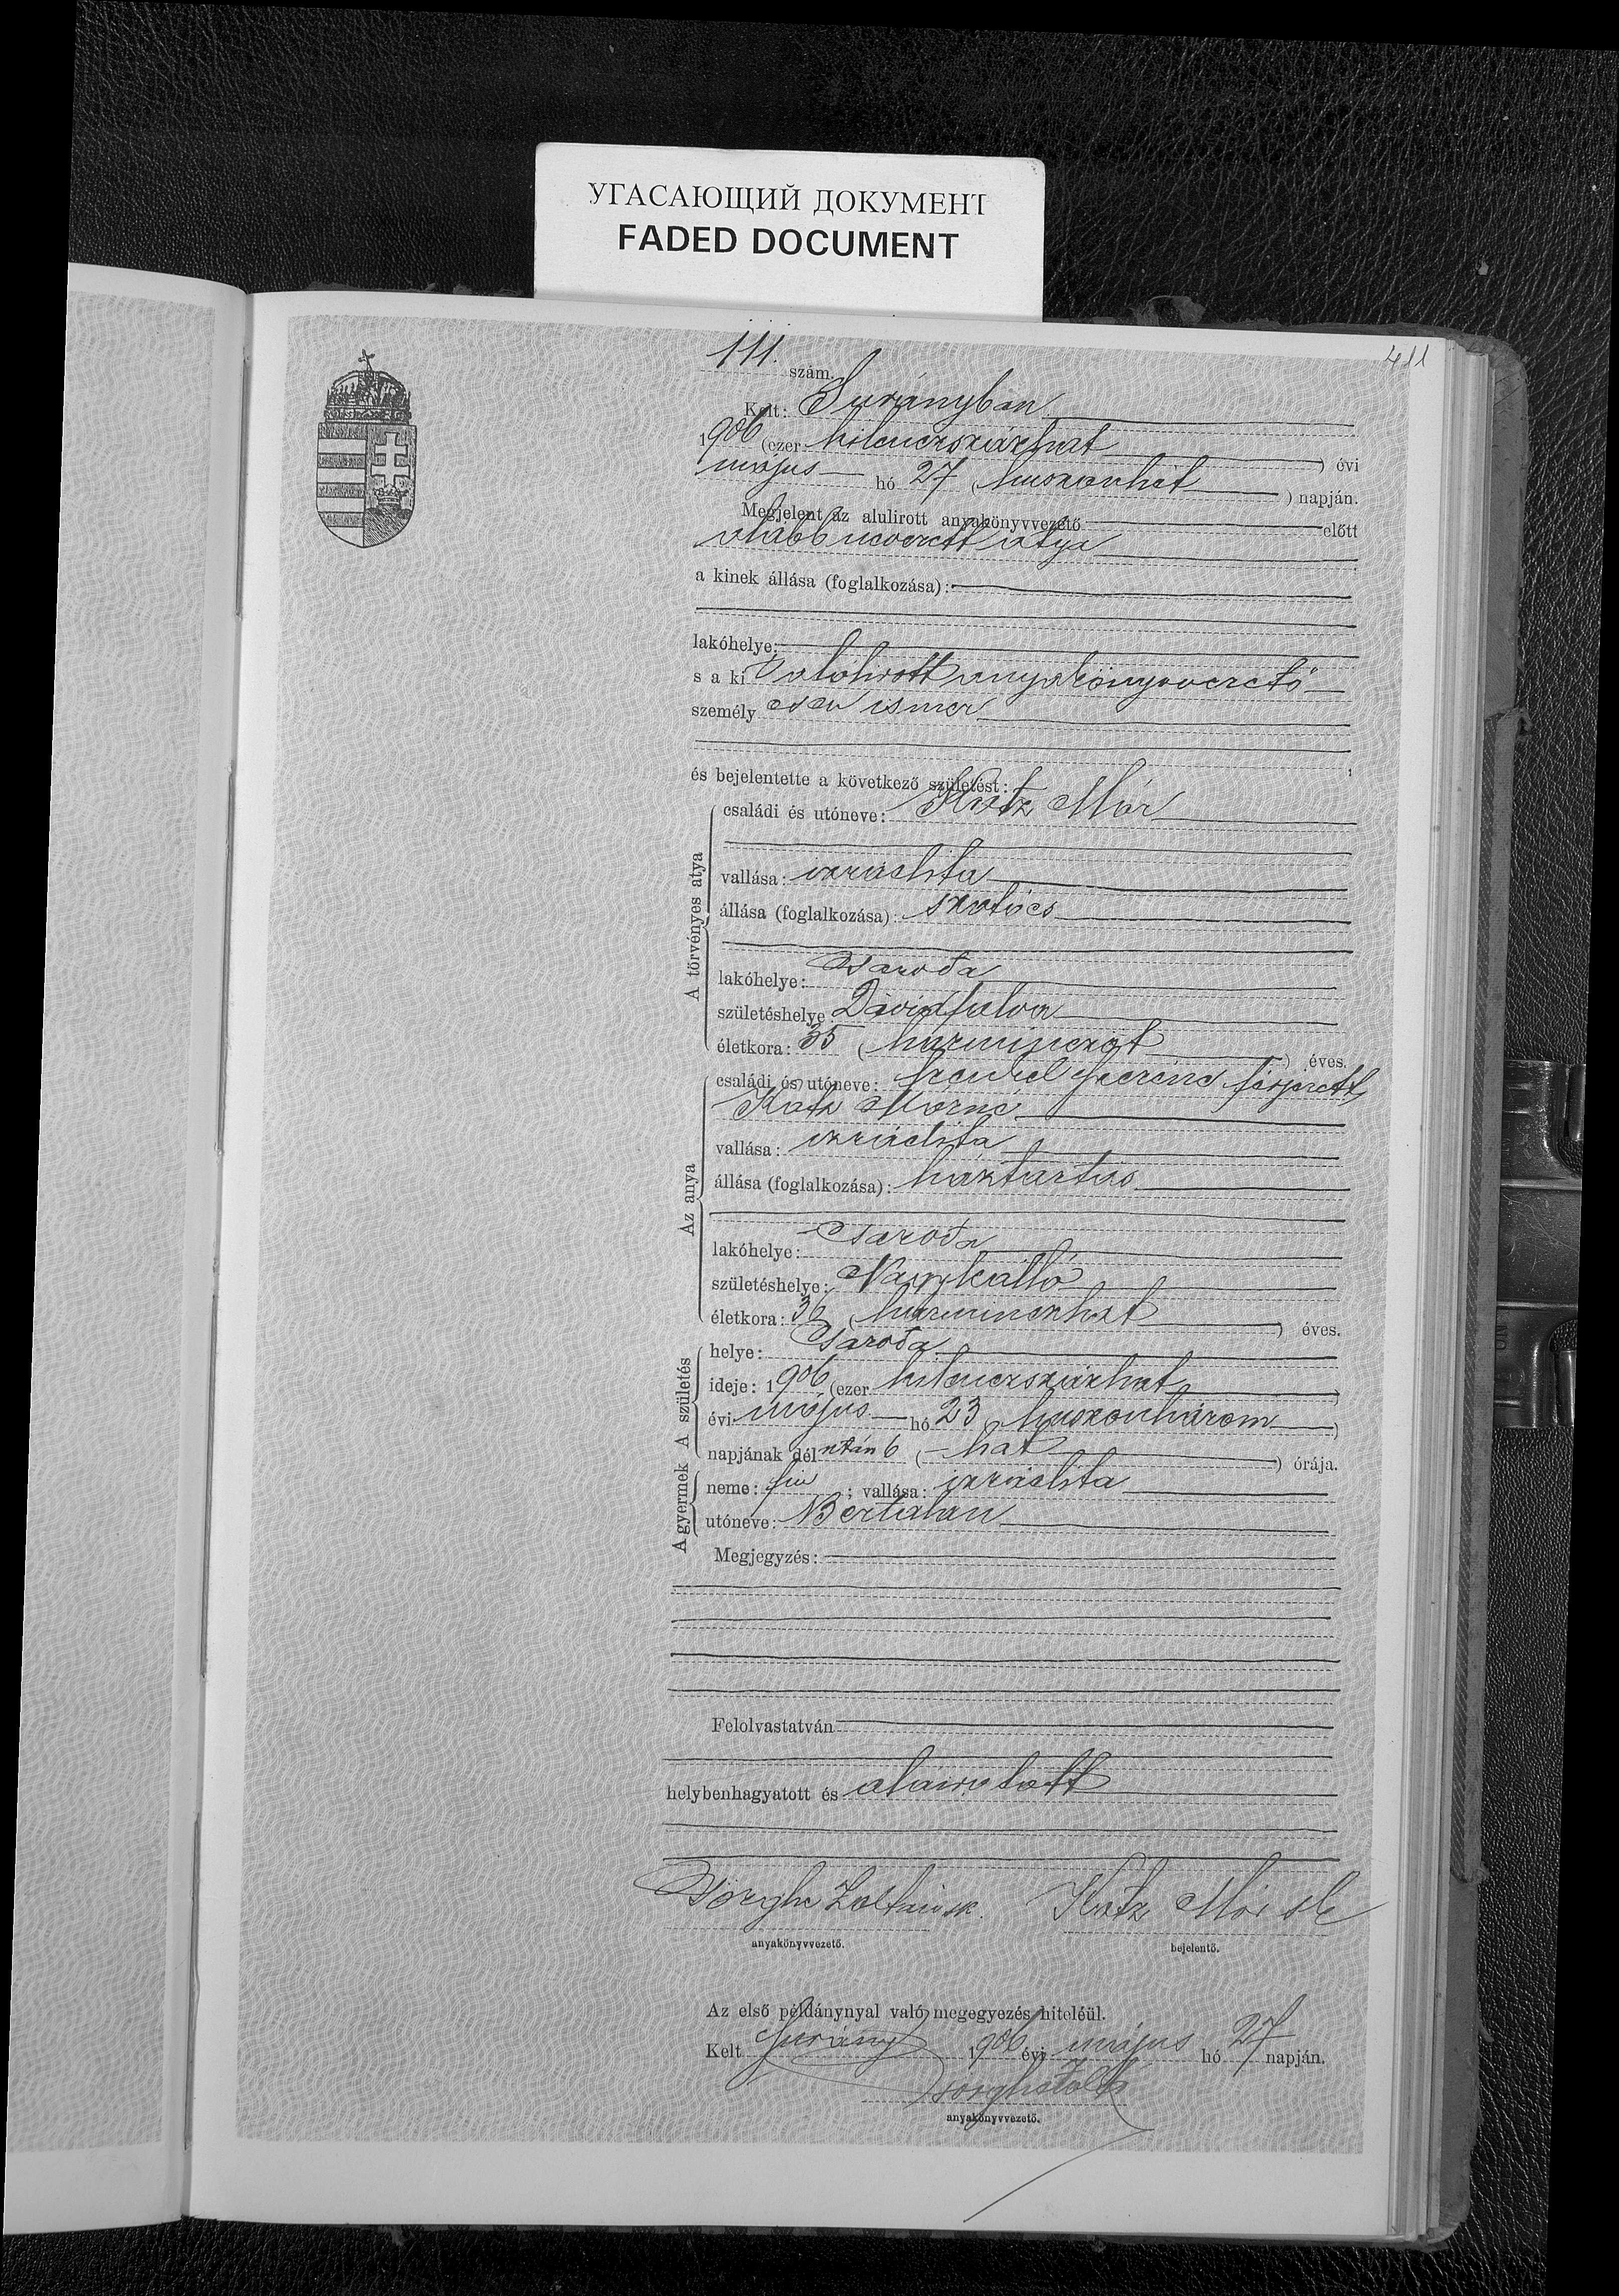 УГАСАЮЩИЙ ДОКУМЕНТ
FADED DOCUMENT
411
111. szám.
Kelt: Surányban
1906 (ezer kilenczszázhat) évi
május hó 27 (huszonhét) napján.
Megjelent az alulirott anyakönyvvezető előtt
alább nevezett atya
a kinek állása (foglalkozása):
lakóhelye:
s a ki alulirott anyakönyvvezető
személy esen ismer
és bejelentette a következő születést:
A törvényes atya
családi és utóneve: Katz Mór
vallása: izraelita
állása (foglalkozása): szatócs
lakóhelye: Csaroda
születéshelye: Dávidfalva
életkora: 35 (harminczöt) éves.
Az anya
családi és utóneve: férjezett
Katz Mórné
vallása: izraelita
állása (foglalkozása): háztartás
lakóhelye: Csaroda
születéshelye: Nagykálló
életkora: 36 (harminczhat) éves.
A születés
helye: Csaroda
ideje: 1906 (ezer kilenczszázhat)
évi május hó 23 (huszonhárom)
napjának délután 6 (hat) órája.
A gyermek
neme: fiu; vallása: izraelita
utóneve: Bertalan
Megjegyzés:
Felolvastatván
helybenhagyatott és aláiratott
Zoltán sk. Katz Mór sk
anyakönyvvezető. bejelentő.
Az első példánynyal való megegyezés hiteléül.
Kelt Surány 1906 évi május hó 27 napján.
anyakönyvvezető.